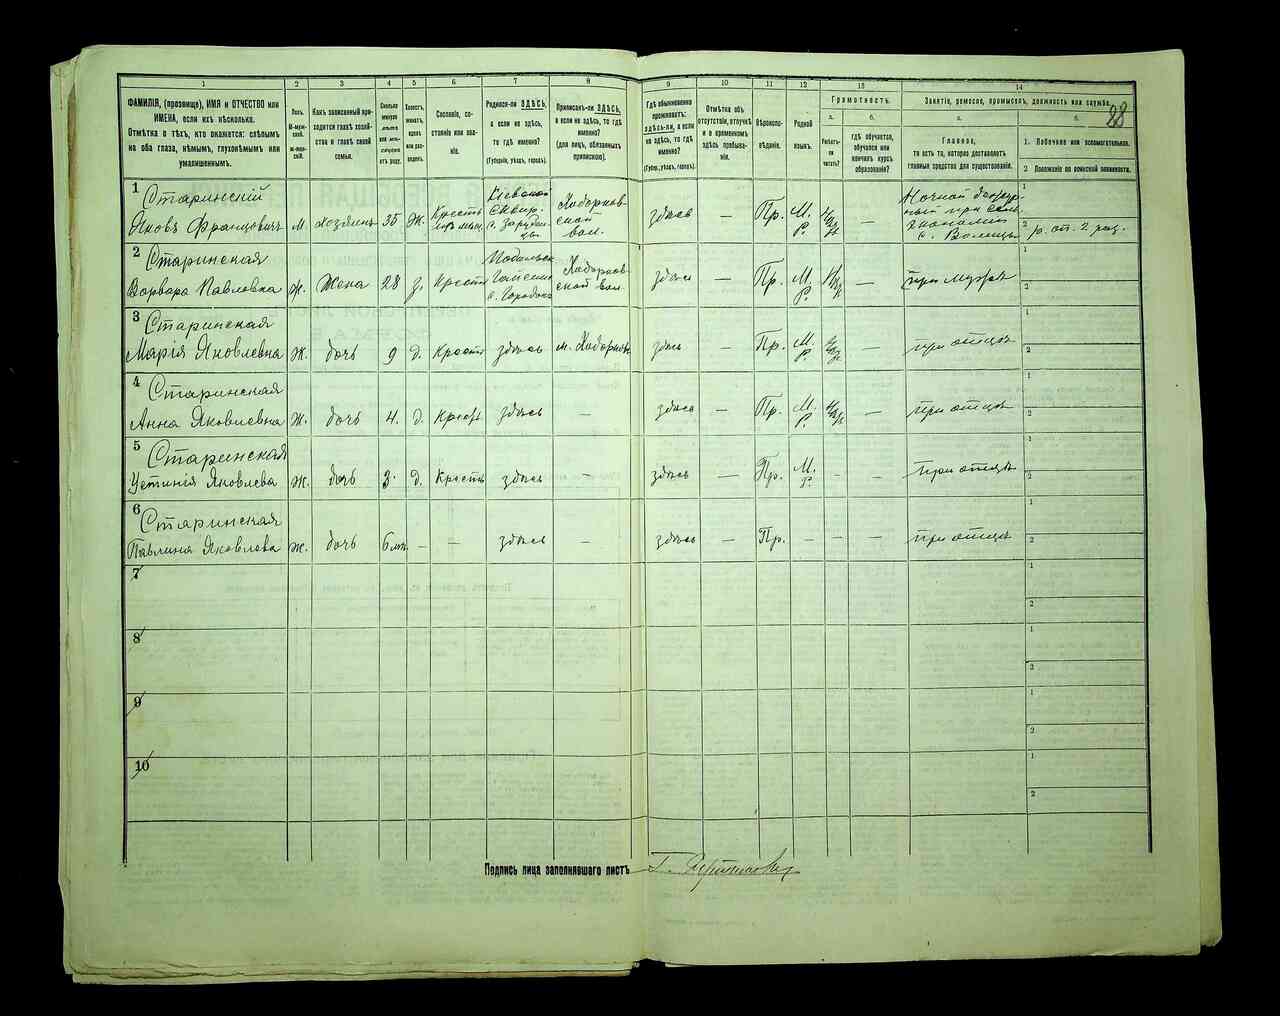 1 2 3 4 5 6 7 8 9 10 11 12 13 14
ФАМИЛІЯ, (прозвище), ИМЯ и ОТЧЕСТВО или ИМЕНА, если ихъ нѣсколько.
Отмѣтка о тѣхъ, кто окажется: слѣпымъ на оба глаза, нѣмымъ, глухонѣмымъ или умалишеннымъ.
Полъ.
М-мужской.
Ж-женскій.
Какъ записанный приходится главѣ хозяйства и главѣ своей семьи.
Сколько минуло лѣтъ или мѣсяцевъ отъ роду.
Холостъ, женатъ, вдовъ или разведенъ.
Сословіе, состояніе или званіе.
Родился-ли ЗДѢСЬ, а если не здѣсь, то гдѣ именно?
(Губернія, уѣздъ, городъ).
Приписанъ-ли ЗДѢСЬ, а если не здѣсь, то гдѣ именно?
(для лицъ, обязанныхъ припискою).
Гдѣ обыкновенно проживаетъ: ЗДѢСЬ-ли, а если не здѣсь, то гдѣ именно?
(Губерн., уѣздъ, городъ).
Отмѣтка объ отсутствіи, отлучкѣ и о временномъ здѣсь пребываніи.
Вѣроисповѣданіе.
Родной языкъ.
Грамотность.
а.
Умѣетъ-ли читать?
б.
гдѣ обучается, обучался или кончилъ курсъ образованія?
Занятіе, ремесло, промыселъ, должность или служба.
88
а.
Главное,
то есть то, которое доставляетъ главныя средства для существованія.
б.
1. Побочное или вспомогательное.
2 Положеніе по воинской повинности.
1 Старинскій
Яковъ Францовичъ М. хозяинъ 35 Ж. Крестьянинъ Кіевской Сквир. с. Зарубинцы Ходорковской вол. здѣсь — Пр. М. Р. —
1
2 р. оп. 2 раз.
2 Старинская
Варвара Павловна Ж. Жена 28 З. Крест. Ходорковской вол. здѣсь — Пр. М. Р. — при мужѣ
1
2
3 Старинская
Марія Яковлевна Ж. дочь 9 д. Крест. здѣсь м. Ходорковъ здѣсь — Пр. М. Р. — при отцѣ
1
2
4 Старинская
Анна Яковлевна Ж. дочь 4. д. Крест. здѣсь — здѣсь — Пр. М. Р. — при отцѣ
1
2
5 Старинская
Устинія Яковлева Ж. дочь 3. д. Крест. здѣсь — здѣсь — Пр. М. Р. — при отцѣ
1
2
6 Старинская
Павлина Яковлева Ж. дочь 6 м. — — здѣсь — здѣсь — Пр. — — — при отцѣ
1
2
7
1
2
8
1
2
9
1
2
10
1
2
Подпись лица заполнявшаго листъ